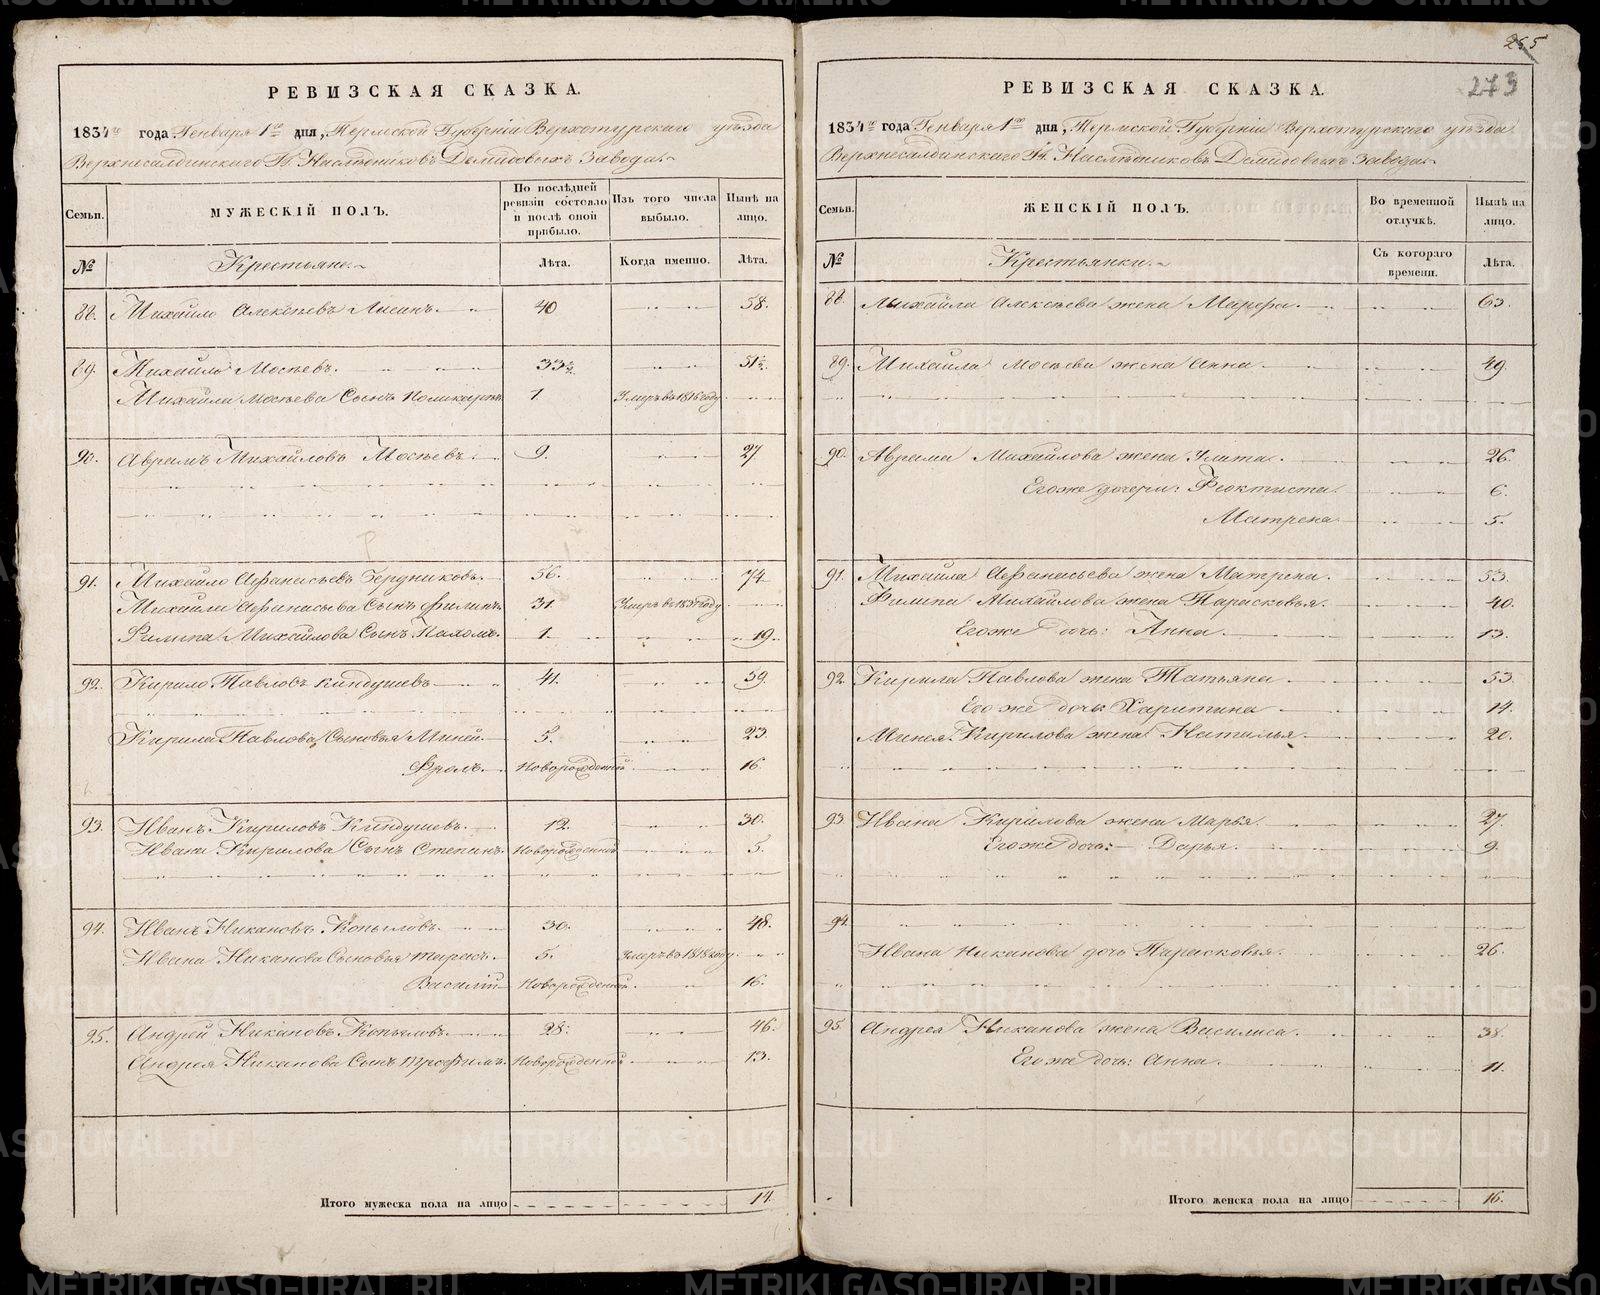 РЕВИЗСКАЯ СКАЗКА.
1834го года Генваря 1го дня, Пермской Губерніи Верхотурского уѣзда
Верхнесалдинскаго Гг. Наслѣдниковъ Демидовыхъ Завода
Семьи.
МУЖЕСКІЙ ПОЛЪ.
По послѣдней ревизіи состояло и послѣ оной прибыло.
Изъ того числа выбыло.
Нынѣ на лицо.
№
Крестьяне.
Лѣта.
Когда именно.
Лѣта.
88. Михайло Алексѣевъ Лисинъ. 40 58.
89. Михайло Мосѣевъ. 33½ 51½
Михайла Мосѣева Сынъ Поликарпъ 1 Умеръ въ 1816 году
90. Аврамъ Михайловъ Мосѣевъ. 9. 27
91. Михайло Афанасьевъ 56. 74.
Михайла Афанасьева Сынъ Филипъ 31. Умеръ в 1831 году
Филипа Михайлова Сынъ Пахомъ. 1. 19.
92. Кирило Павловъ Киндушевъ 41. 59.
Кирила Павлова Сыновья Миней 5. 23.
Фролъ. Новорожденной 16
93. Иванъ Кириловъ Киндушевъ. 12. 30.
Ивана Кирилова Сынъ Степанъ. Новорожденной 5.
94. Иванъ Никановъ Копыловъ. 30. 48.
Ивана Никанова Сыновья Тарасъ. 5. Умеръ въ 1818 году
Василій Новорожденной 16.
95. Андрей Никановъ Копыловъ. 28. 46.
Андрея Никанова Сынъ Трофимъ. Новорожденной 13.
Итого мужеска пола на лицо 14.
265
273
РЕВИЗСКАЯ СКАЗКА.
1834го года Генваря 1го дня, Пермской Губерніи Верхотурскаго уѣзда
Верхнесалдинскаго Гг. Наслѣдниковъ Демидовыхъ Завода
Семьи.
ЖЕНСКІЙ ПОЛЪ.
Во временной отлучкѣ.
Нынѣ на лицо.
№
Крестьянки.
Съ котораго времени.
Лѣта.
88. Михайла Алексѣева жена Марфа. 63.
89. Михайла Мосѣева жена Анна. 49.
90. Аврама Михайлова жена Улита. 26.
Его же дочери: Феоктиста. 6.
Матрена 5.
91. Михайла Афанасьева жена Матрена. 53.
Филипа Михайлова жена Парасковья. 40.
Его же дочь: Анна. 13.
92. Кирила Павлова жена Татьяна. 53.
Его же дочь Харитина 14.
Минея Кирилова жена Наталья. 20.
93 Ивана Кирилова жена Марья. 27.
Его же дочь: Дарья. 9.
94.
Ивана Никанова дочь Парасковья. 26.
95 Андрея Никанова жена Василиса. 38.
Его же дочь: Анна. 11.
Итого женска пола на лицо 16.
METRIKI.GASO-URAL.RU